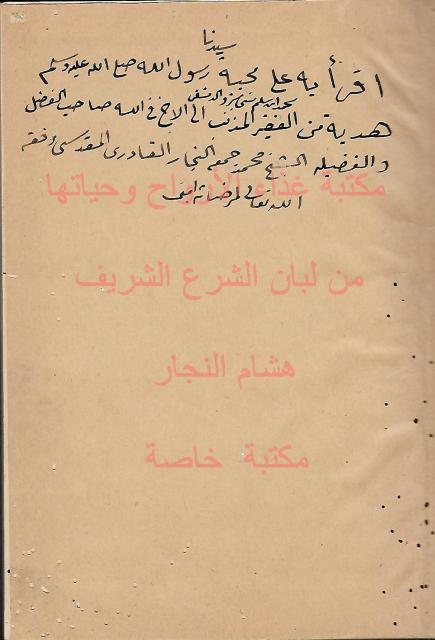 سيدنا
اقرأ يه على محبة رسول الله صلى الله عليه وسلم
هدية من الفقير المذنب الى الاخ في الله صاحب الفضل
والفضيله الشيخ محمد جمعه النجار القادري المقدسي وفقه
الله تعالى لمرضاته امين
مكتبة غذاء الأرواح وحياتها
من لبان الشرع الشريف
هشام النجار
مكتبة خاصة